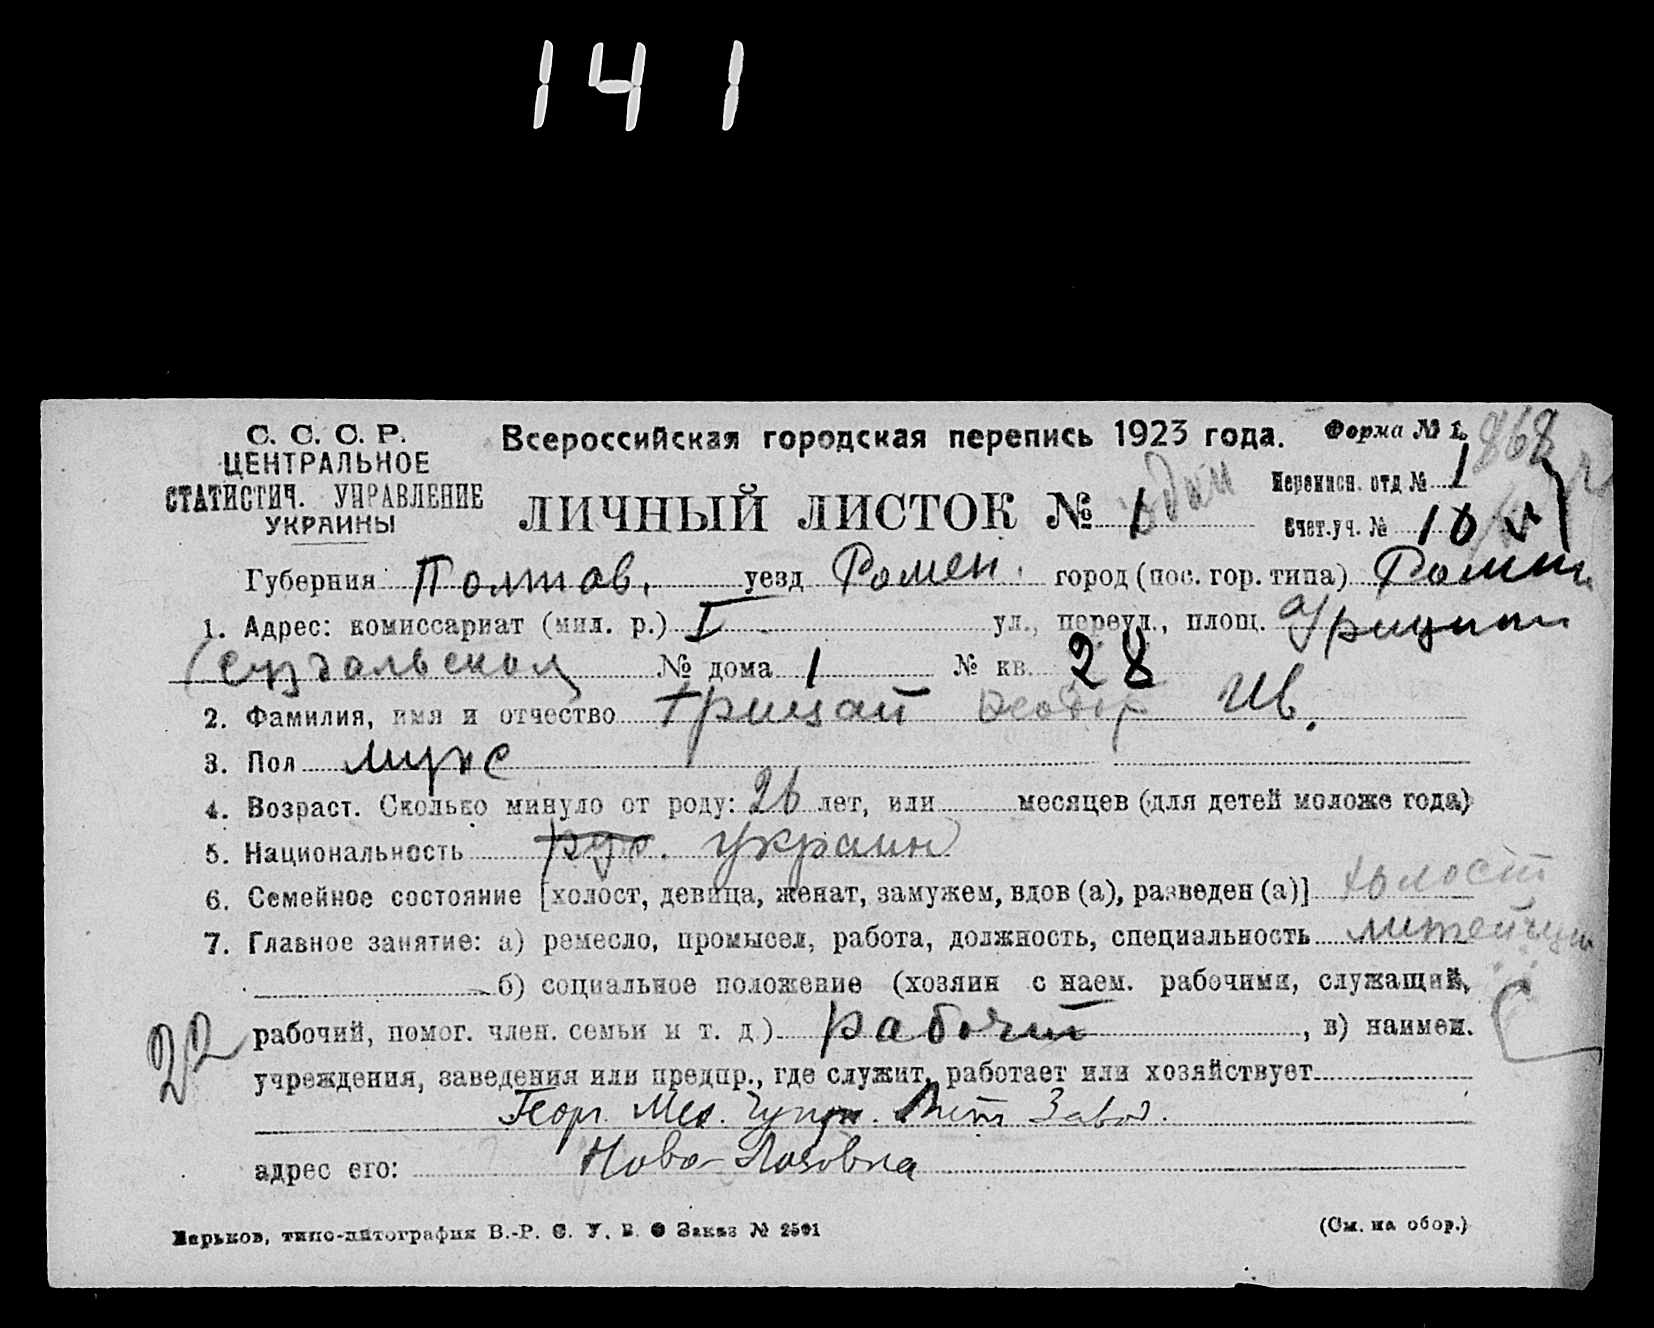 141
С. С. С. Р.
ЦЕНТРАЛЬНОЕ
СТАТИСТИЧ. УПРАВЛЕНИЕ
УКРАИНЫ
Всероссийская городская перепись 1923 года.
Форма № 1.
868
ЛИЧНЫЙ ЛИСТОК № 1
Переписн. отд № 1
Счет.уч. № 10
Губерния Полтав. уезд Ромен. город (пос. гор. типа) Ромны
1. Адрес: комиссариат (мил. р.) I ул., переул., площ.
№ дома 1 № кв. 28
2. Фамилия, имя и отчество Грицай Ив.
3. Пол муж
4. Возраст. Сколько минуло от роду: 26 лет, или месяцев (для детей моложе года)
5. Национальность рус. украин
6. Семейное состояние [холост, девица, женат, замужем, вдов (а), разведен (а)] холост
7. Главное занятие: а) ремесло, промысел, работа, должность, специальность литейщик
б) социальное положение (хозяин с наем. рабочими, служащий,
22
рабочий, помог. член. семьи и т. д.) рабочий, в) наимен.
учреждения, заведения или предпр., где служит, работает или хозяйствует
Мех. Чугун. Лит Завод.
адрес его: Ново-Лозовка
Харьков, типо-литография В.-Р. С. У. В. Заказ № 2501
(См. на обор.)